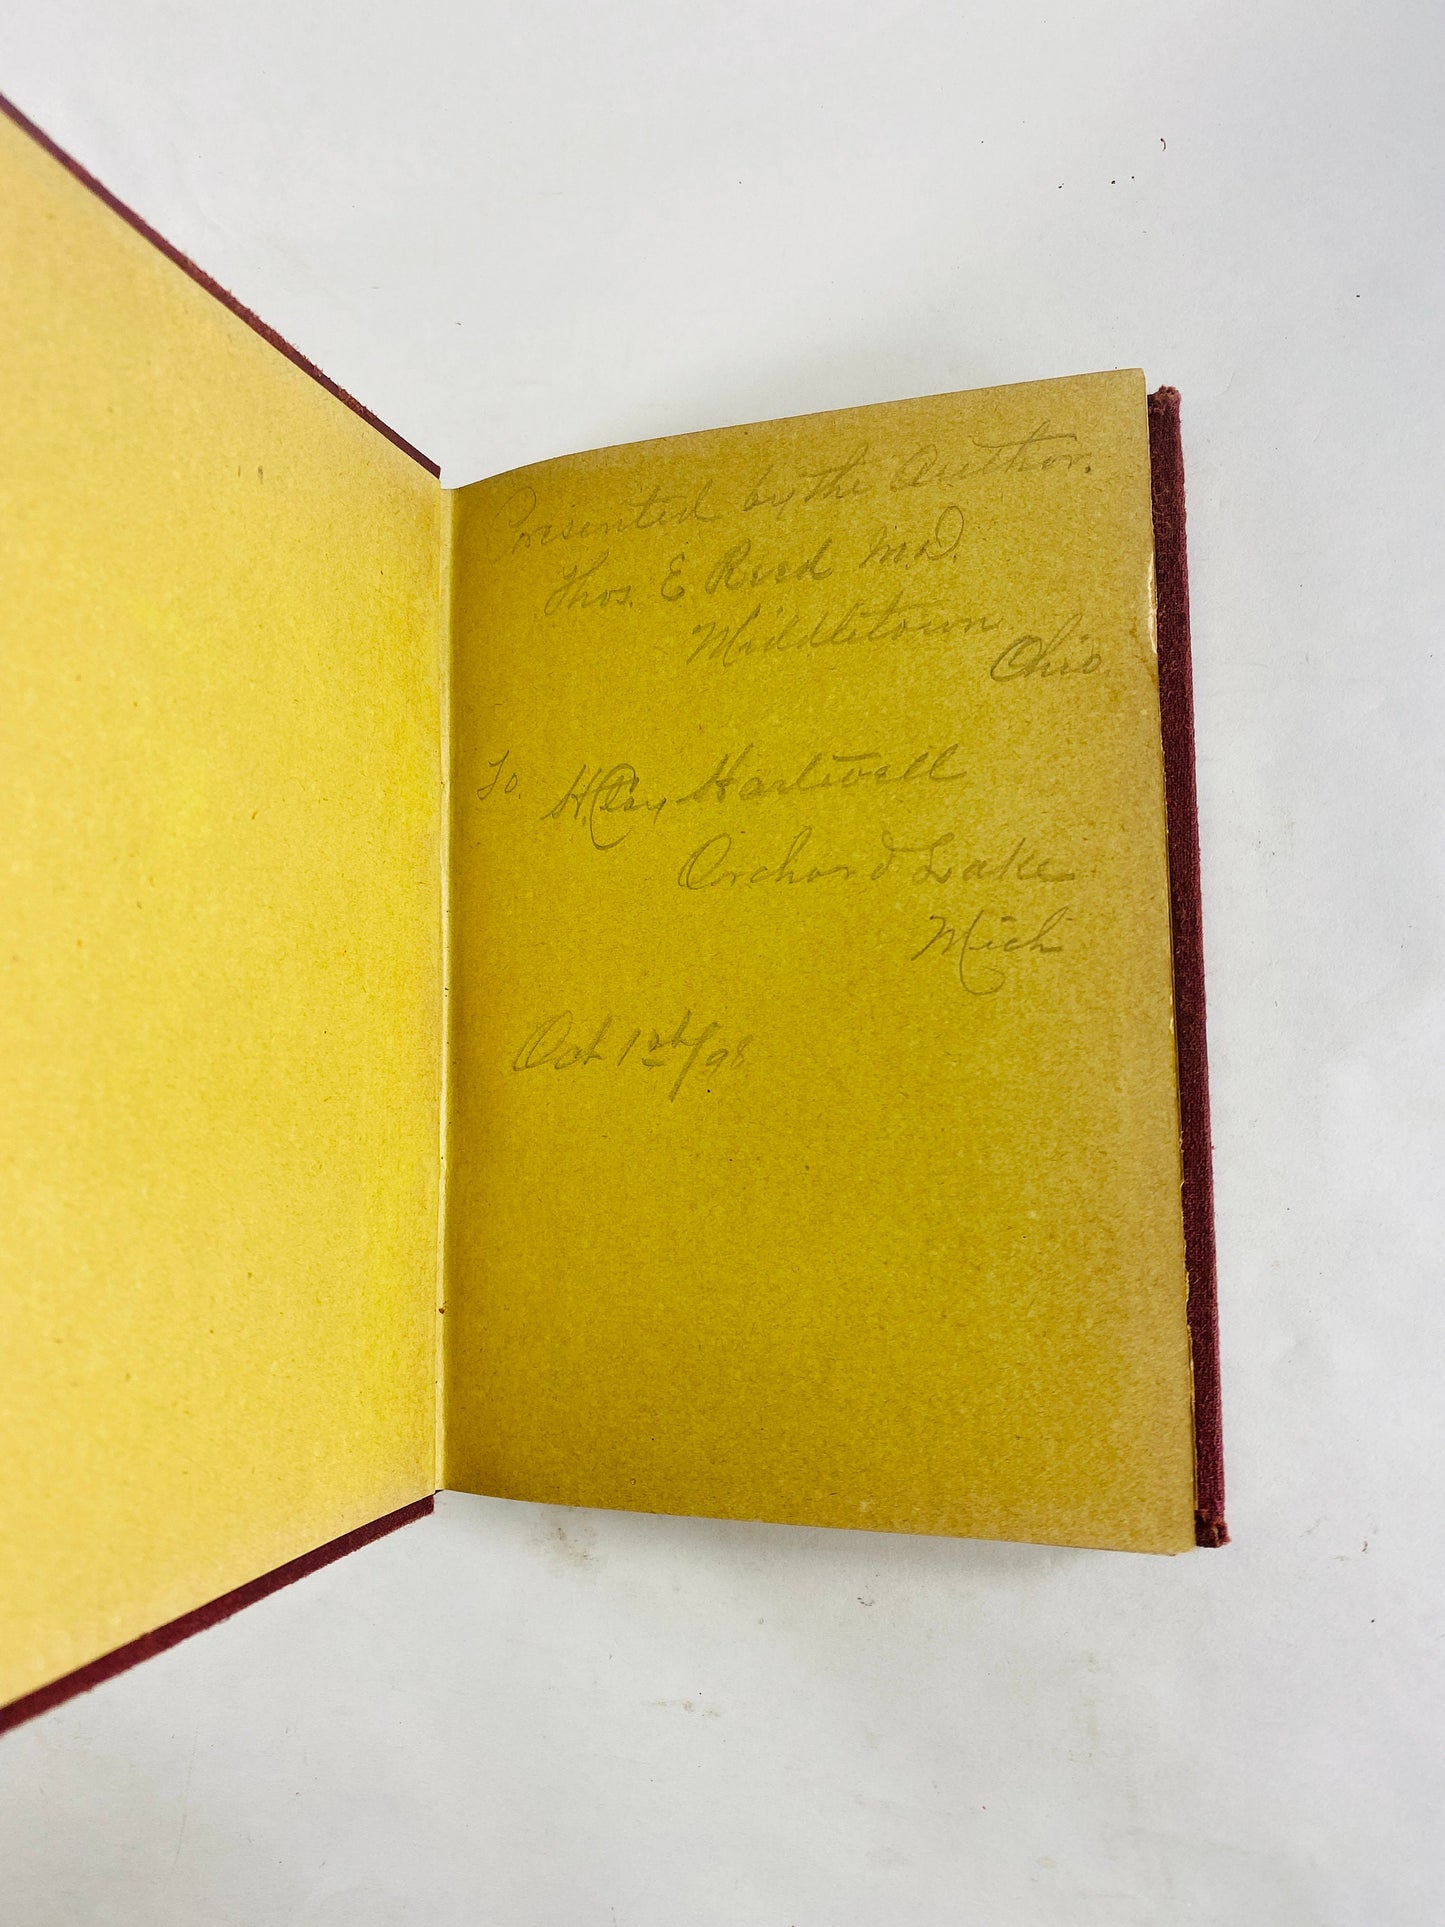 Presented by the Author.
Thos. E Reed M.D.
Middletown
Ohio.
To. H. Hartwell
Orchard Lake
Mich
Oct 1st/98